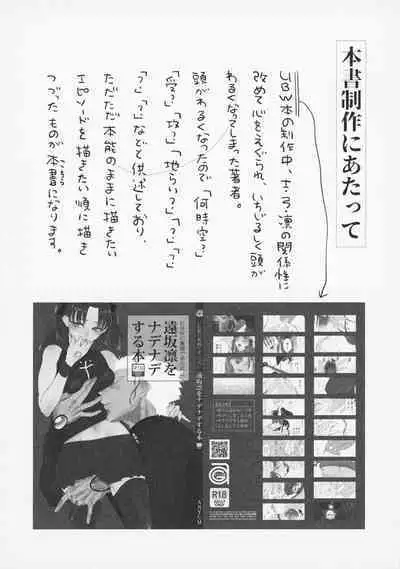 本書制作にあたって
UBW本の制作中、士・弓・凛の関係性に
改めて心をえぐられ、いちじるしく頭が
わるくなってしまった著者。
頭がわるくなったので「何時空?」
「受?」「攻?」「地らい?」「?」「?」
「?」「?」などと供述しており、
ただただ本能のままに描きたい
エピソードを描きたい順に描き
つづったものが本書になります。
遠坂凛を
ナデナデ
する本
R18
遠坂凛をナデナデする本
R18